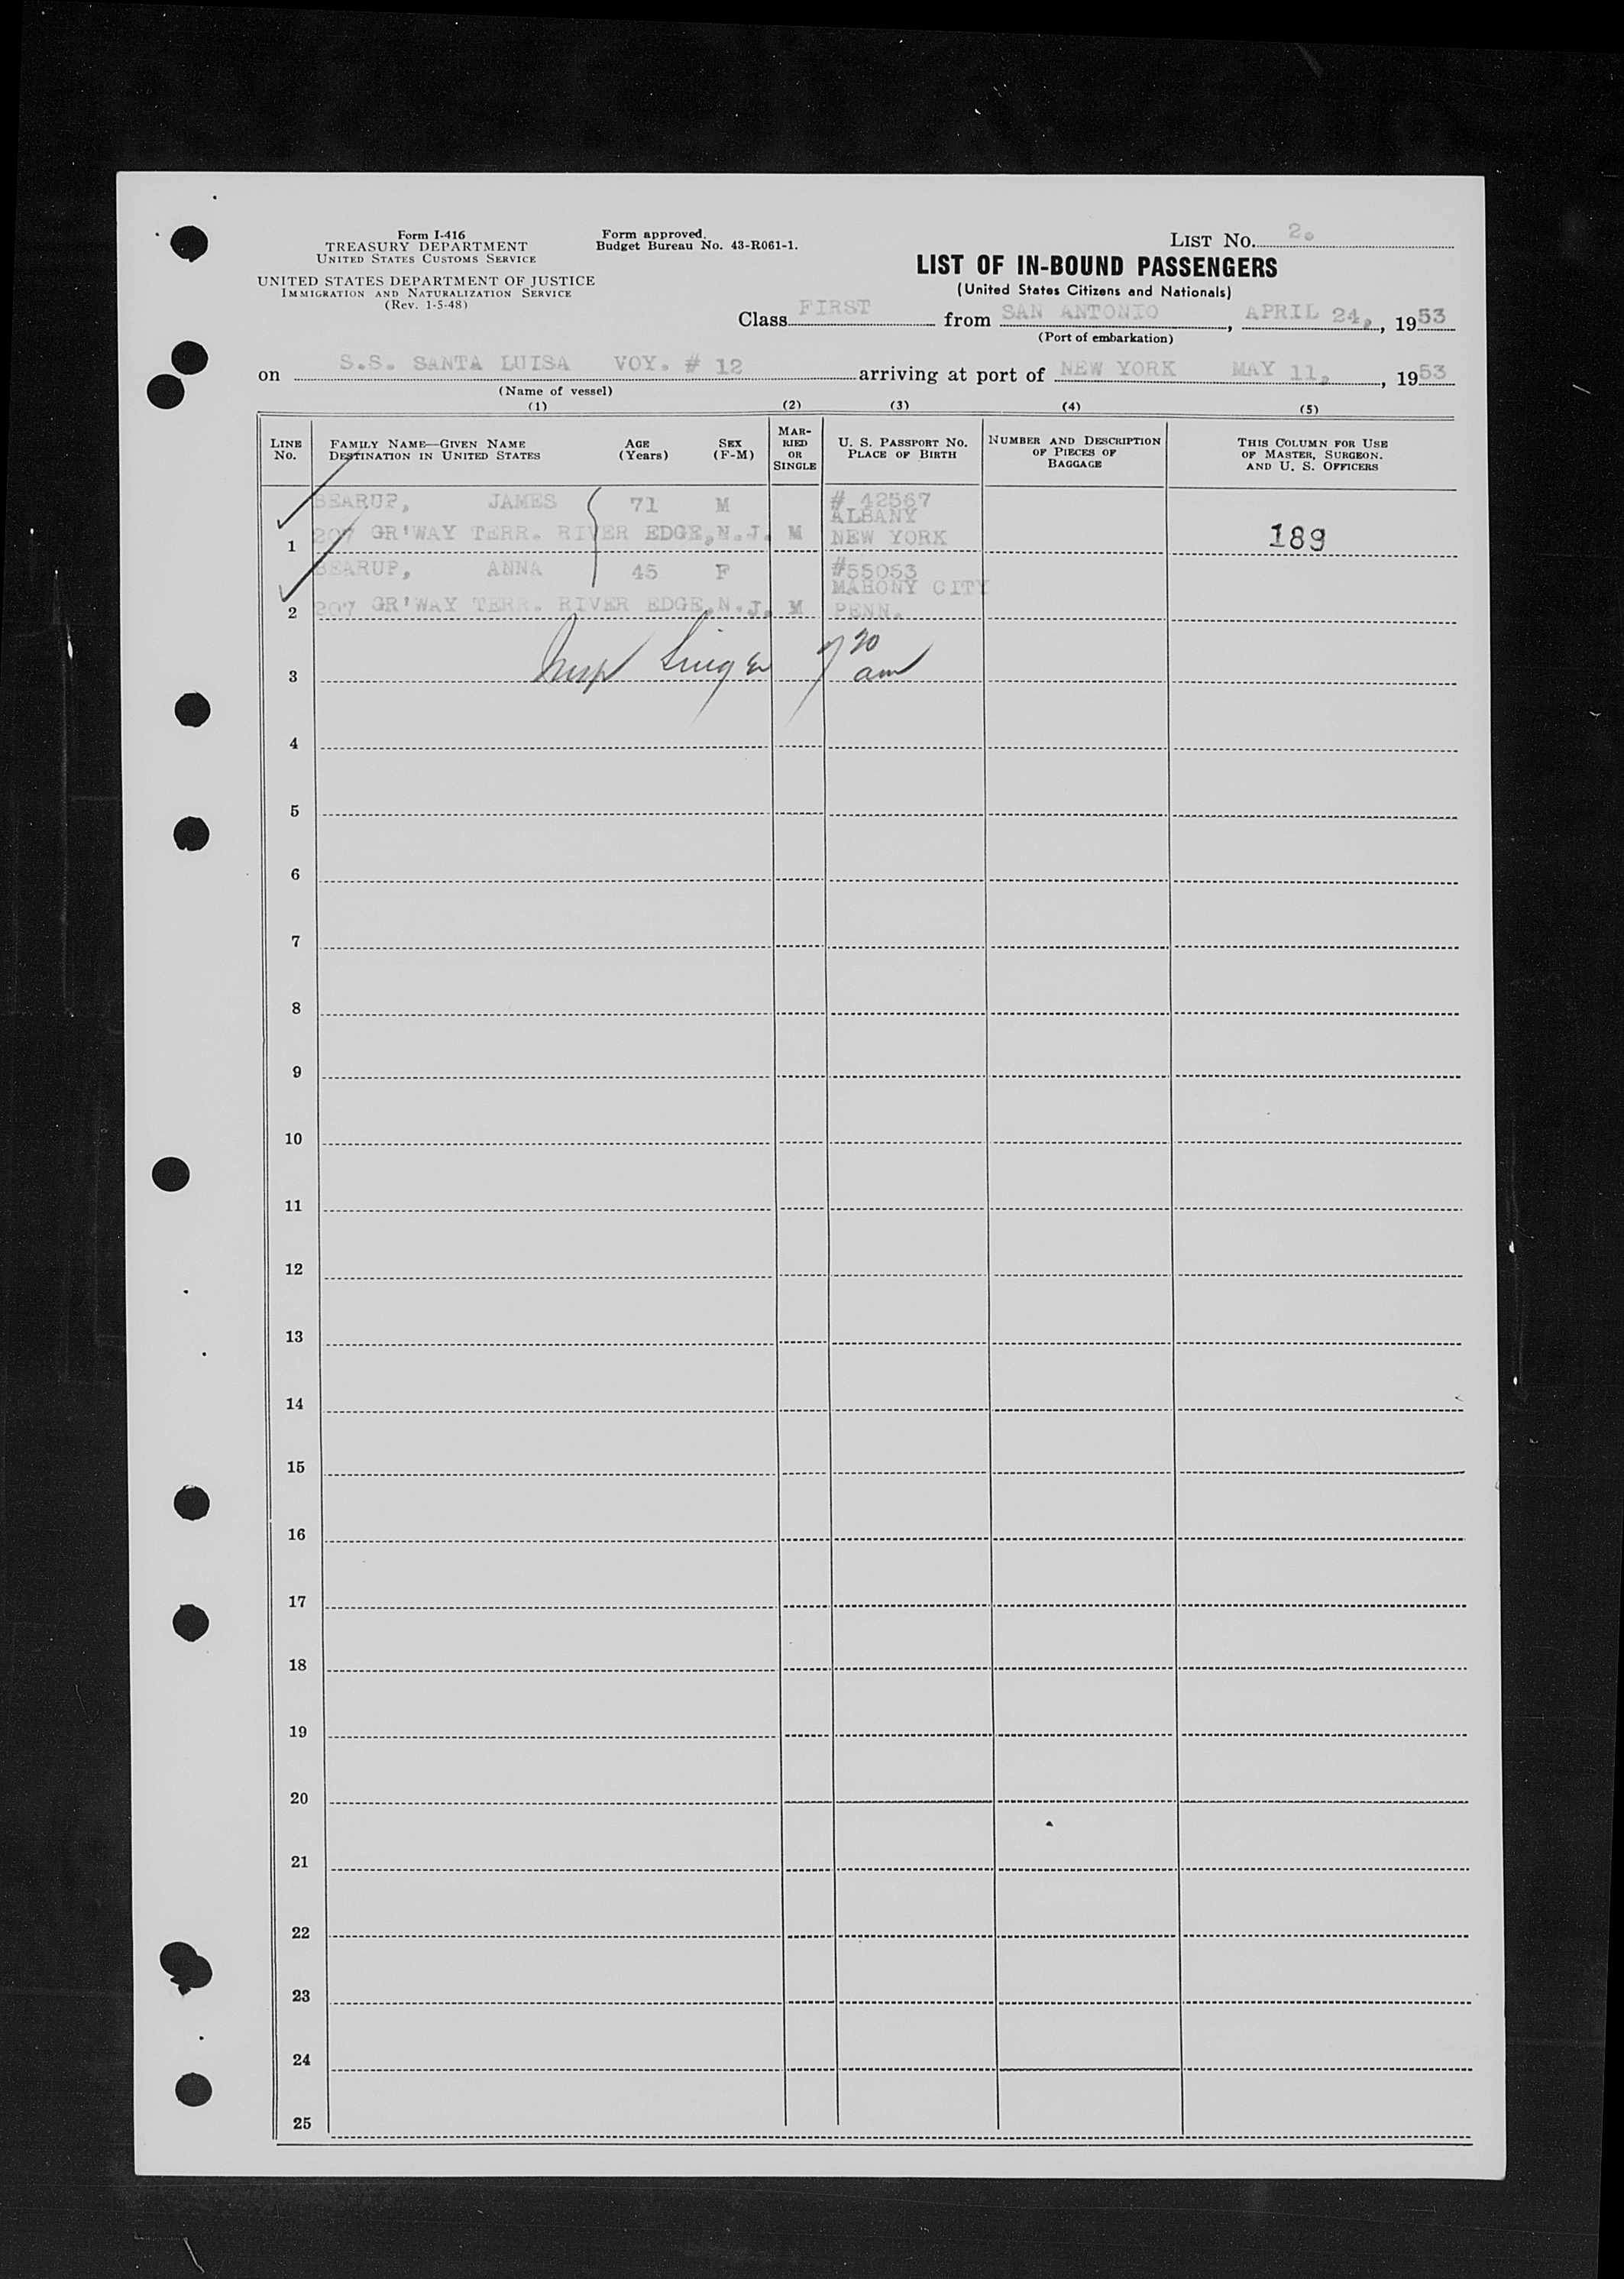 Form I-416
TREASURY DEPARTMENT
UNITED STATES CUSTOMS SERVICE
UNITED STATES DEPARTMENT OF JUSTICE
IMMIGRATION AND NATURALIZATION SERVICE
(Rev. 1-5-48)
Form approved.
Budget Bureau No. 43-R061-1.
LIST NO. 2.
LIST OF IN-BOUND PASSENGERS
(United States Citizens and Nationals)
Class FIRST from SAN ANTONIO, APRIL 24,, 1953
(Port of embarkation)
on S.S. SANTA LUISA VOY. # 12 arriving at port of NEW YORK MAY 11,, 1953
(Name of vessel)
(1) (2) (3) (4) (5)
LINE NO.
FAMILY NAME—GIVEN NAME
DESTINATION IN UNITED STATES
AGE
(Years)
SEX
(F-M)
MAR-
RIED
OR
SINGLE
U. S. PASSPORT NO.
PLACE OF BIRTH
NUMBER AND DESCRIPTION
OF PIECES OF
BAGGAGE
THIS COLUMN FOR USE
OF MASTER, SURGEON.
AND U. S. OFFICERS
BEARUP, JAMES 71 M # 42567
ALBANY
1 207 GR'WAY TERR. RIVER EDGE,N.J. M NEW YORK 189
BEARUP, ANNA 45 F #55053
MAHONY CITY
2 207 GR'WAY TERR. RIVER EDGE,N.J. M PENN.
3 Insp Singer 7 20 am
4
5
6
7
8
9
10
11
12
13
14
15
16
17
18
19
20
21
22
23
24
25